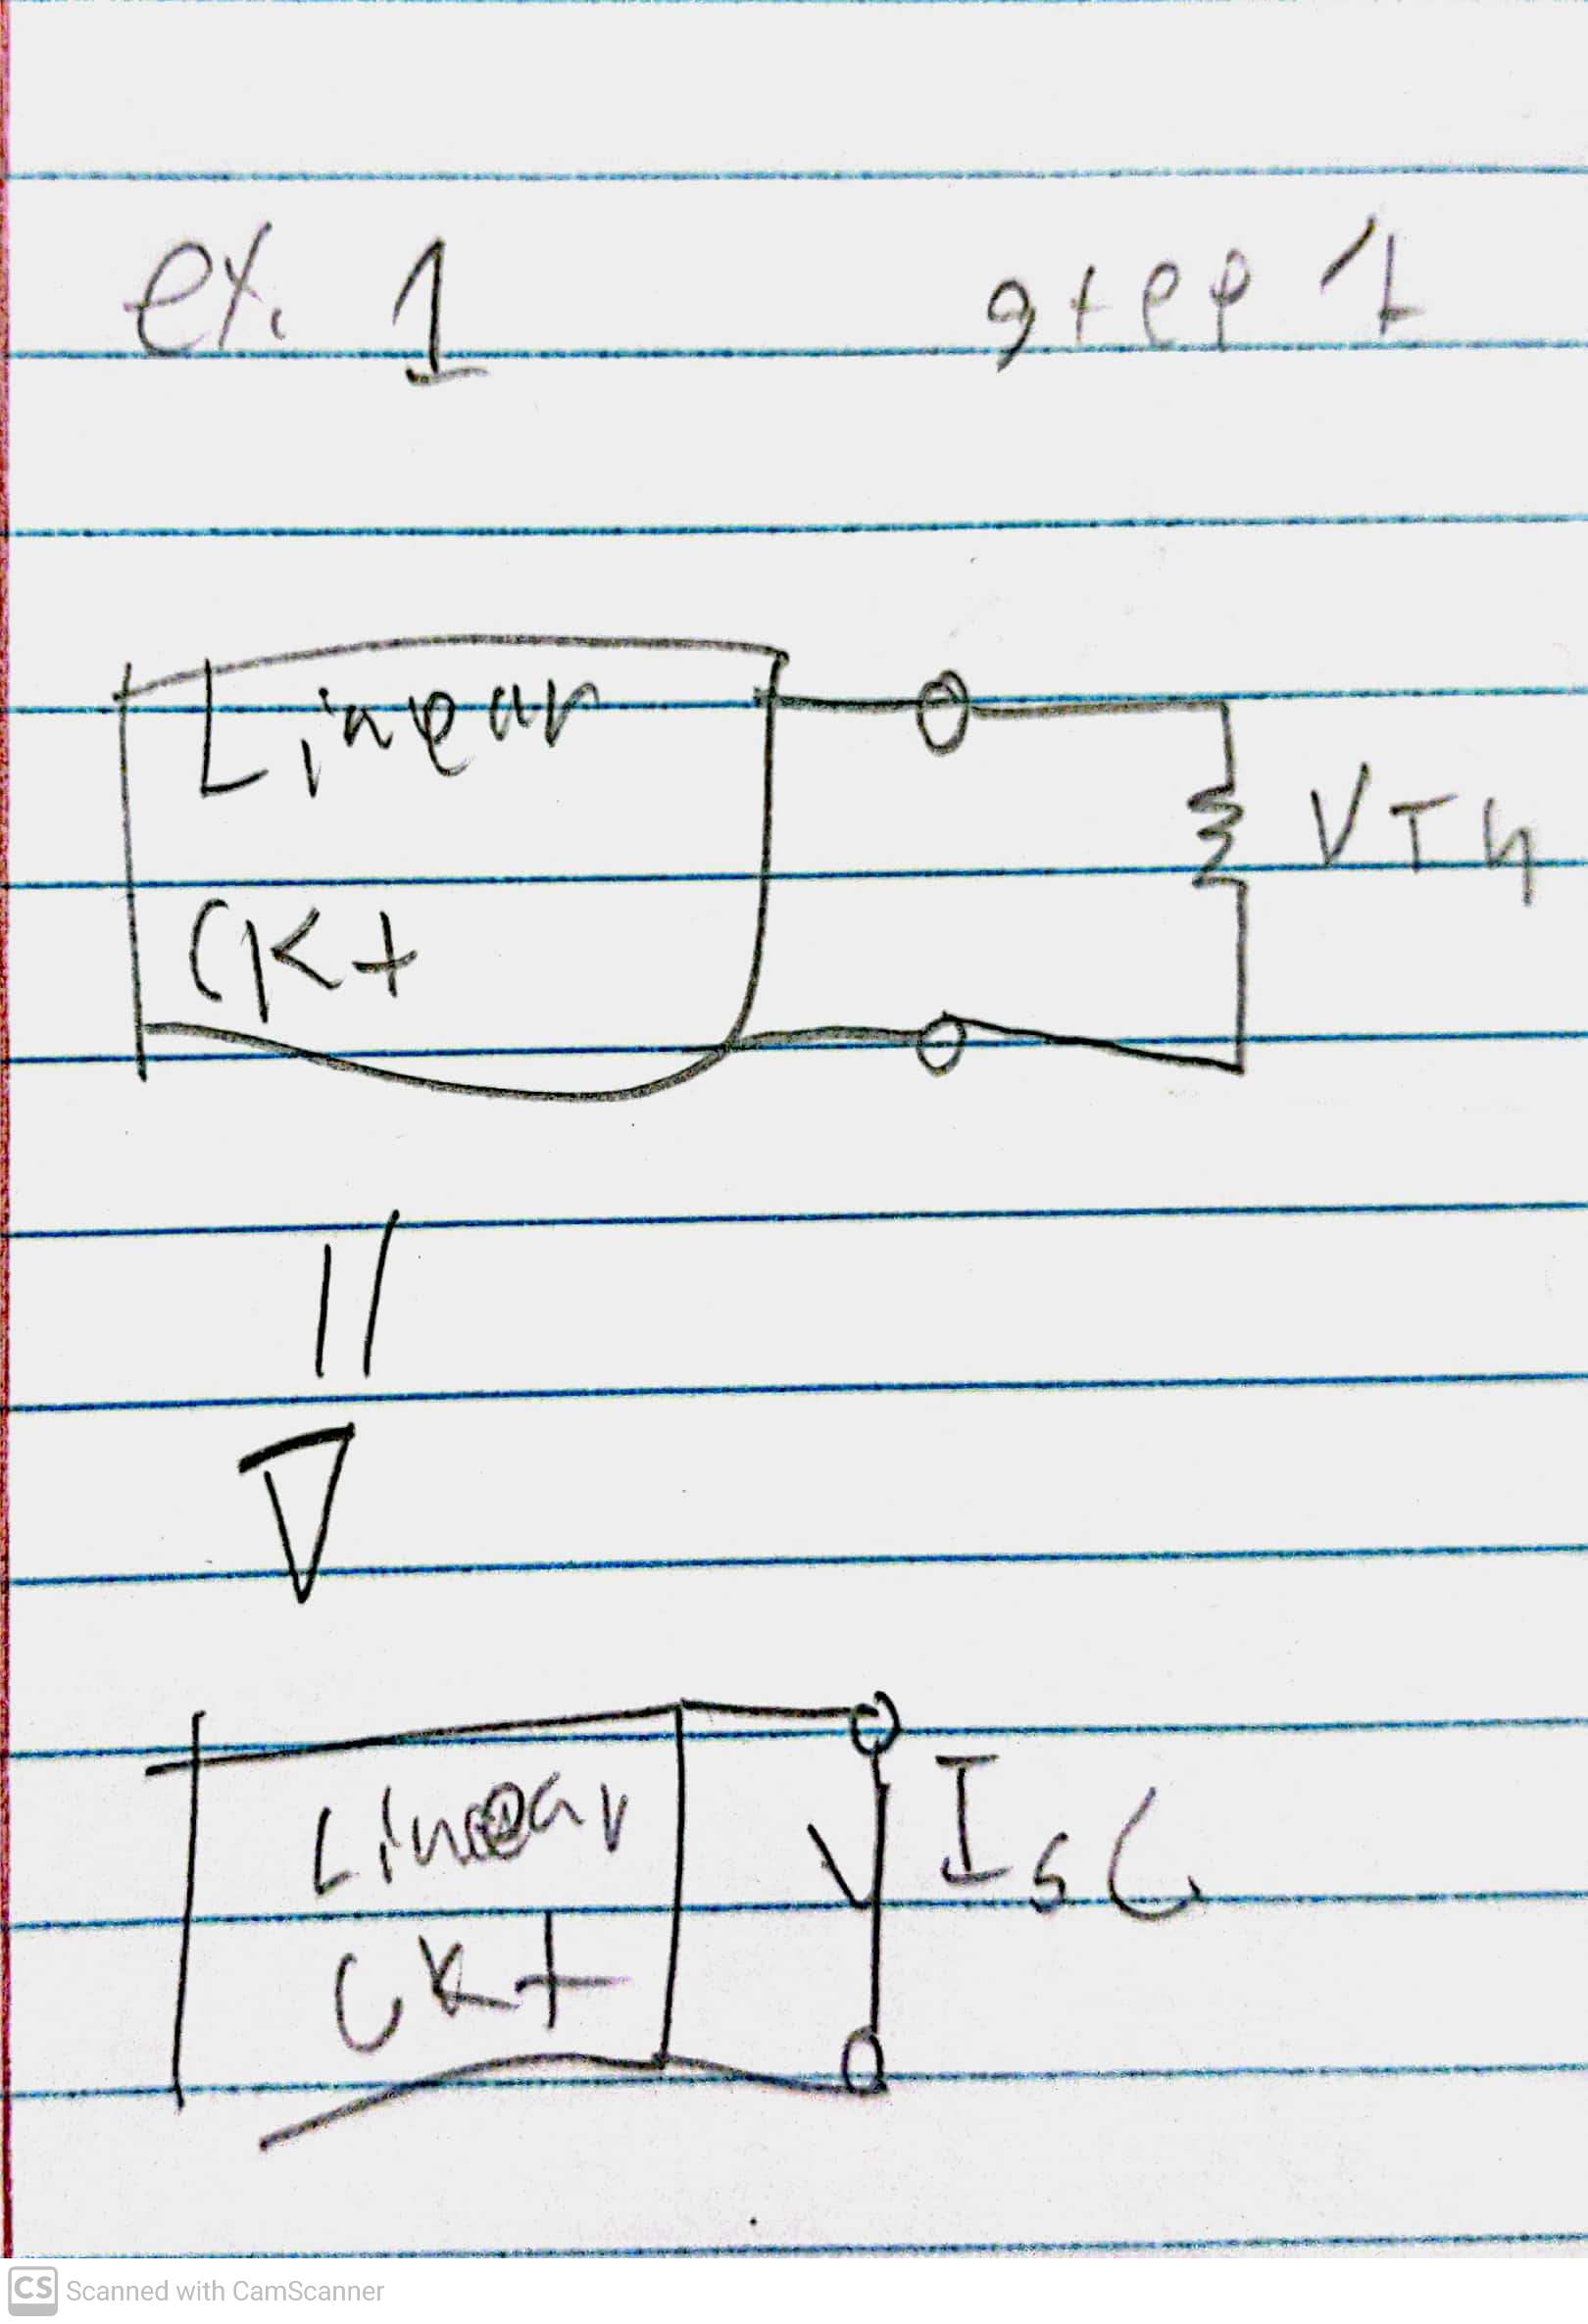 ex. 1
step 1
Linear
CKt
VTh
Linear
CKt
Isc
CS Scanned with CamScanner